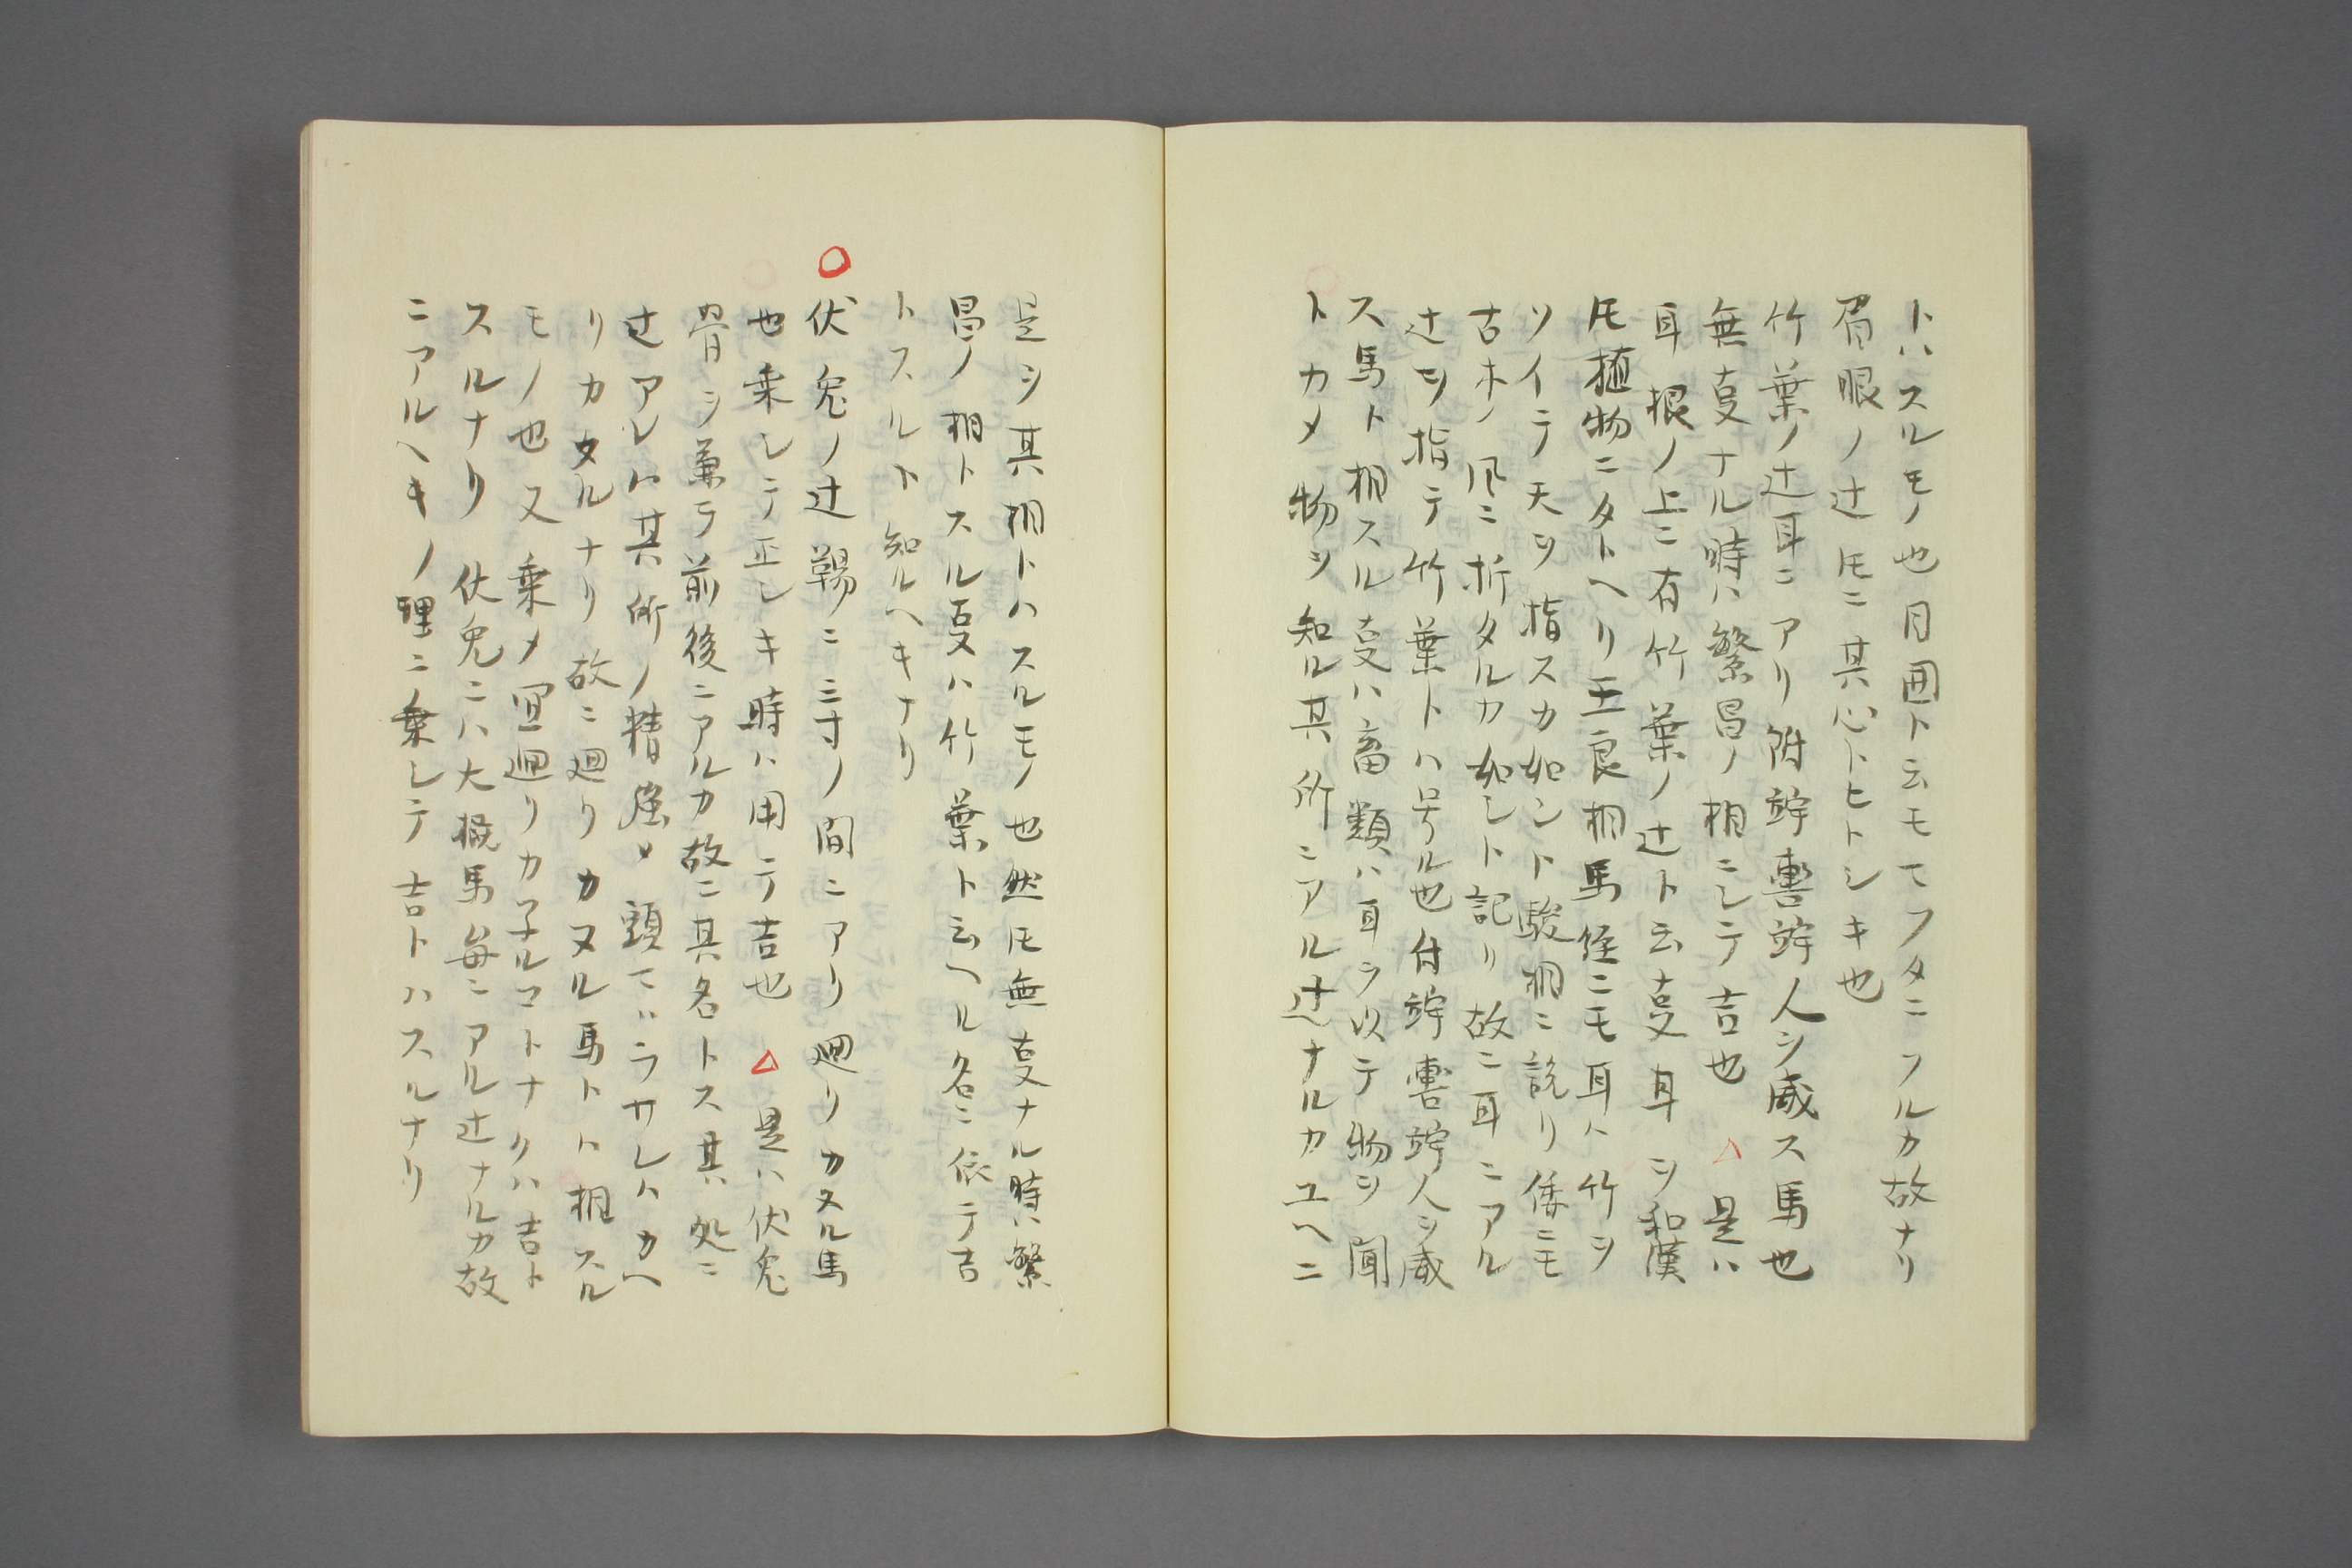 トハスルモノ也月囲ト云モマフタニフルカ故ナリ
眉眼ノ辻𪜈ニ其心トヒトシキ也
竹葉ノ辻耳ニアリ附嚔轡嚔人ヲ威ス馬也
無㕝ナル時ハ繁昌ノ相ニシテ吉也 △ 是ハ
耳根ノ上ニ有竹葉ノ辻ト云㕝耳ヲ和漢
𪜈植物ニタトヘリ王良相馬経ニモ耳ハ竹ヲ
ソイテ天ヲ指スカ如ント駿相ニ説リ倭ニモ
古木ノ風ニ折タルカ如シト記リ故ニ耳ニアル
辻ヲ指テ竹葉トハ号ル也付嚔轡嚔人ヲ威
ス馬ト相スル㕝ハ畜類ハ耳ヲ以テ物ヲ聞
トカメ物ヲ知ル其所ニアル辻ナルカユヘニ
是ヲ其相トハスルモノ也然𪜈無㕝ナル時ハ繁
昌ノ相トスル㕝ハ竹葉ト云ヘル名ニ依テ吉
トスルト知ルヘキナリ
○伏兔ノ辻鞍ニ三寸ノ間ニアリ廻リカヌル馬
也乗シテ正シキ時ハ用テ吉也 △ 是ハ伏兔
骨ヲ兼テ前後ニアルカ故ニ其名トス其処ニ
辻アレハ其所ノ精強メ頭マハラサレハカヘ
リカタルナリ故ニ廻リカヌル馬トト相スル
モノ也又乗メ宜廻リカ子ルコトナクハ吉ト
スルナリ伏兔ニハ大概馬毎ニアル辻ナルカ故
ニアルヘキノ理ニ乗シテ吉トハスルナリ